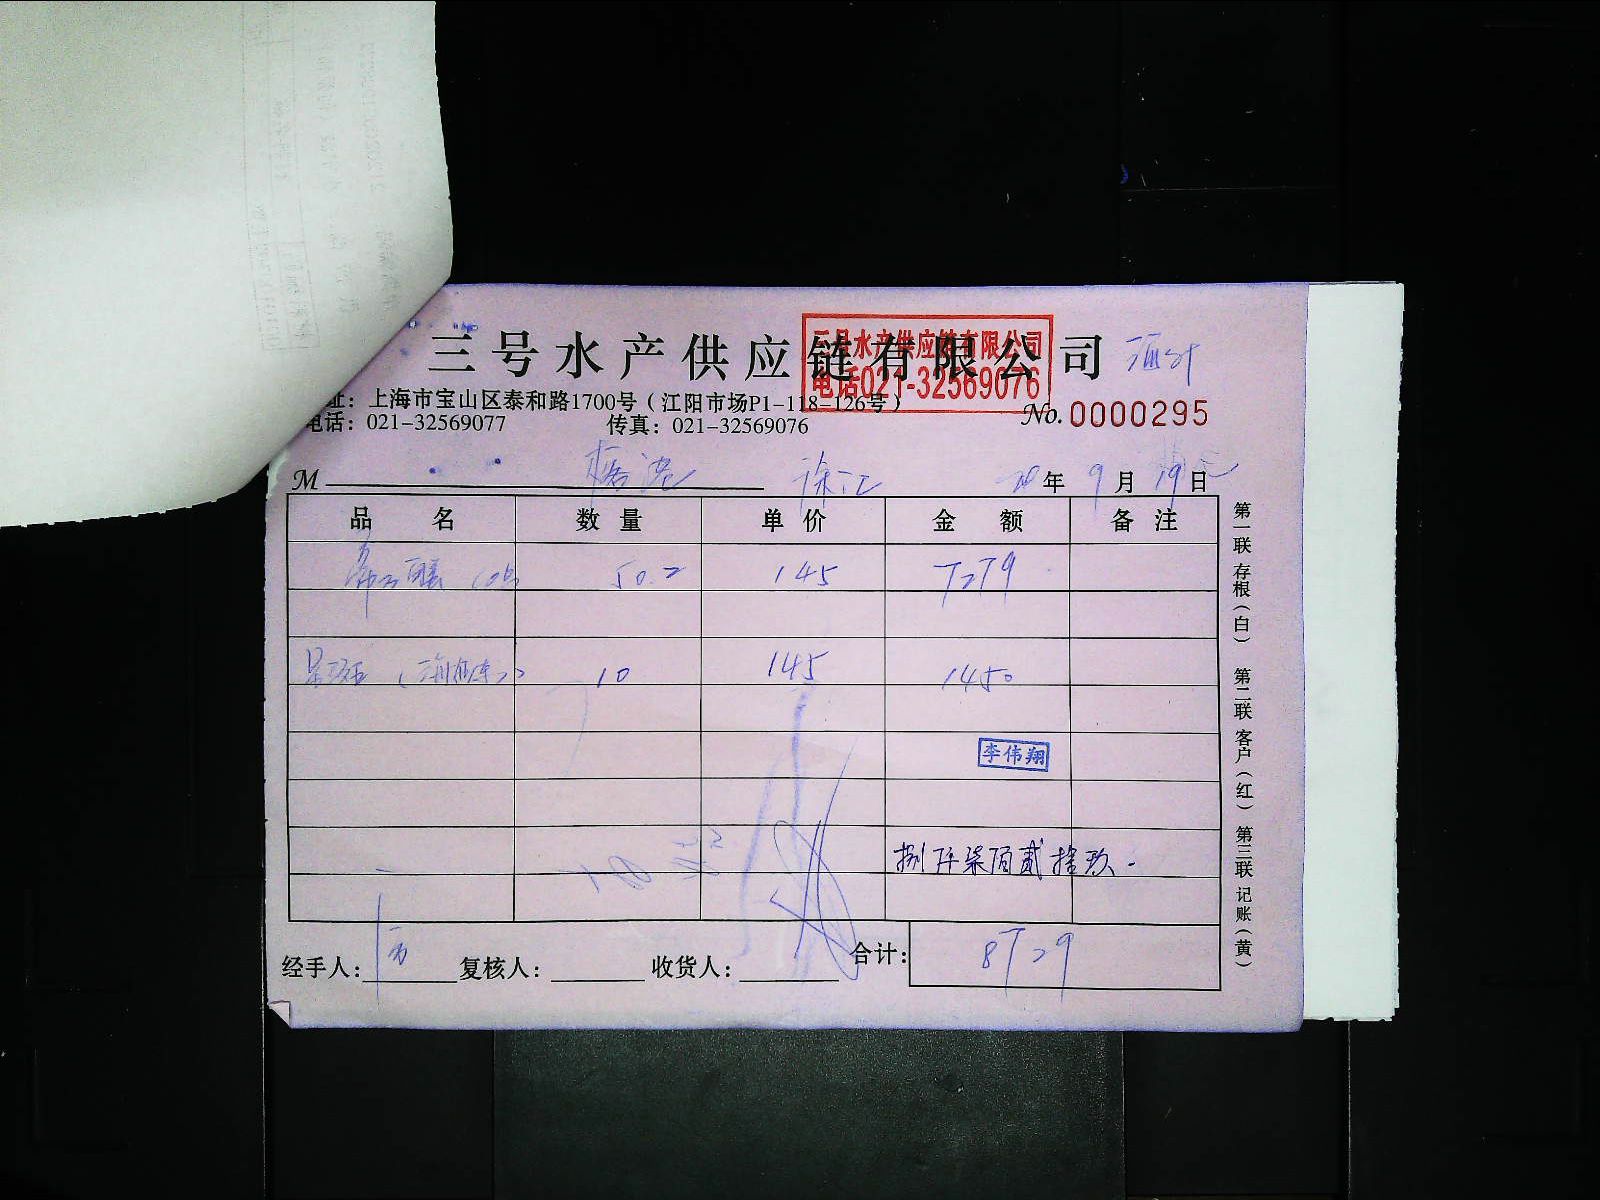 三号水产供应链有限公司
三号水产供应链有限公司
电话021-32569076
址：上海市宝山区泰和路1700号（江阳市场P1-118-126号）
电话：021-32569077 传真：021-32569076
No. 0000295
M 徐汇 20年9月19日
品名 数量 单价 金额 备注
50.2 145 7279
10 145 1450
李伟翔
捌仟柒佰贰拾玖
经手人： 复核人： 收货人： 合计： 8729
第一联 存根（白） 第二联 客户（红） 第三联 记账（黄）